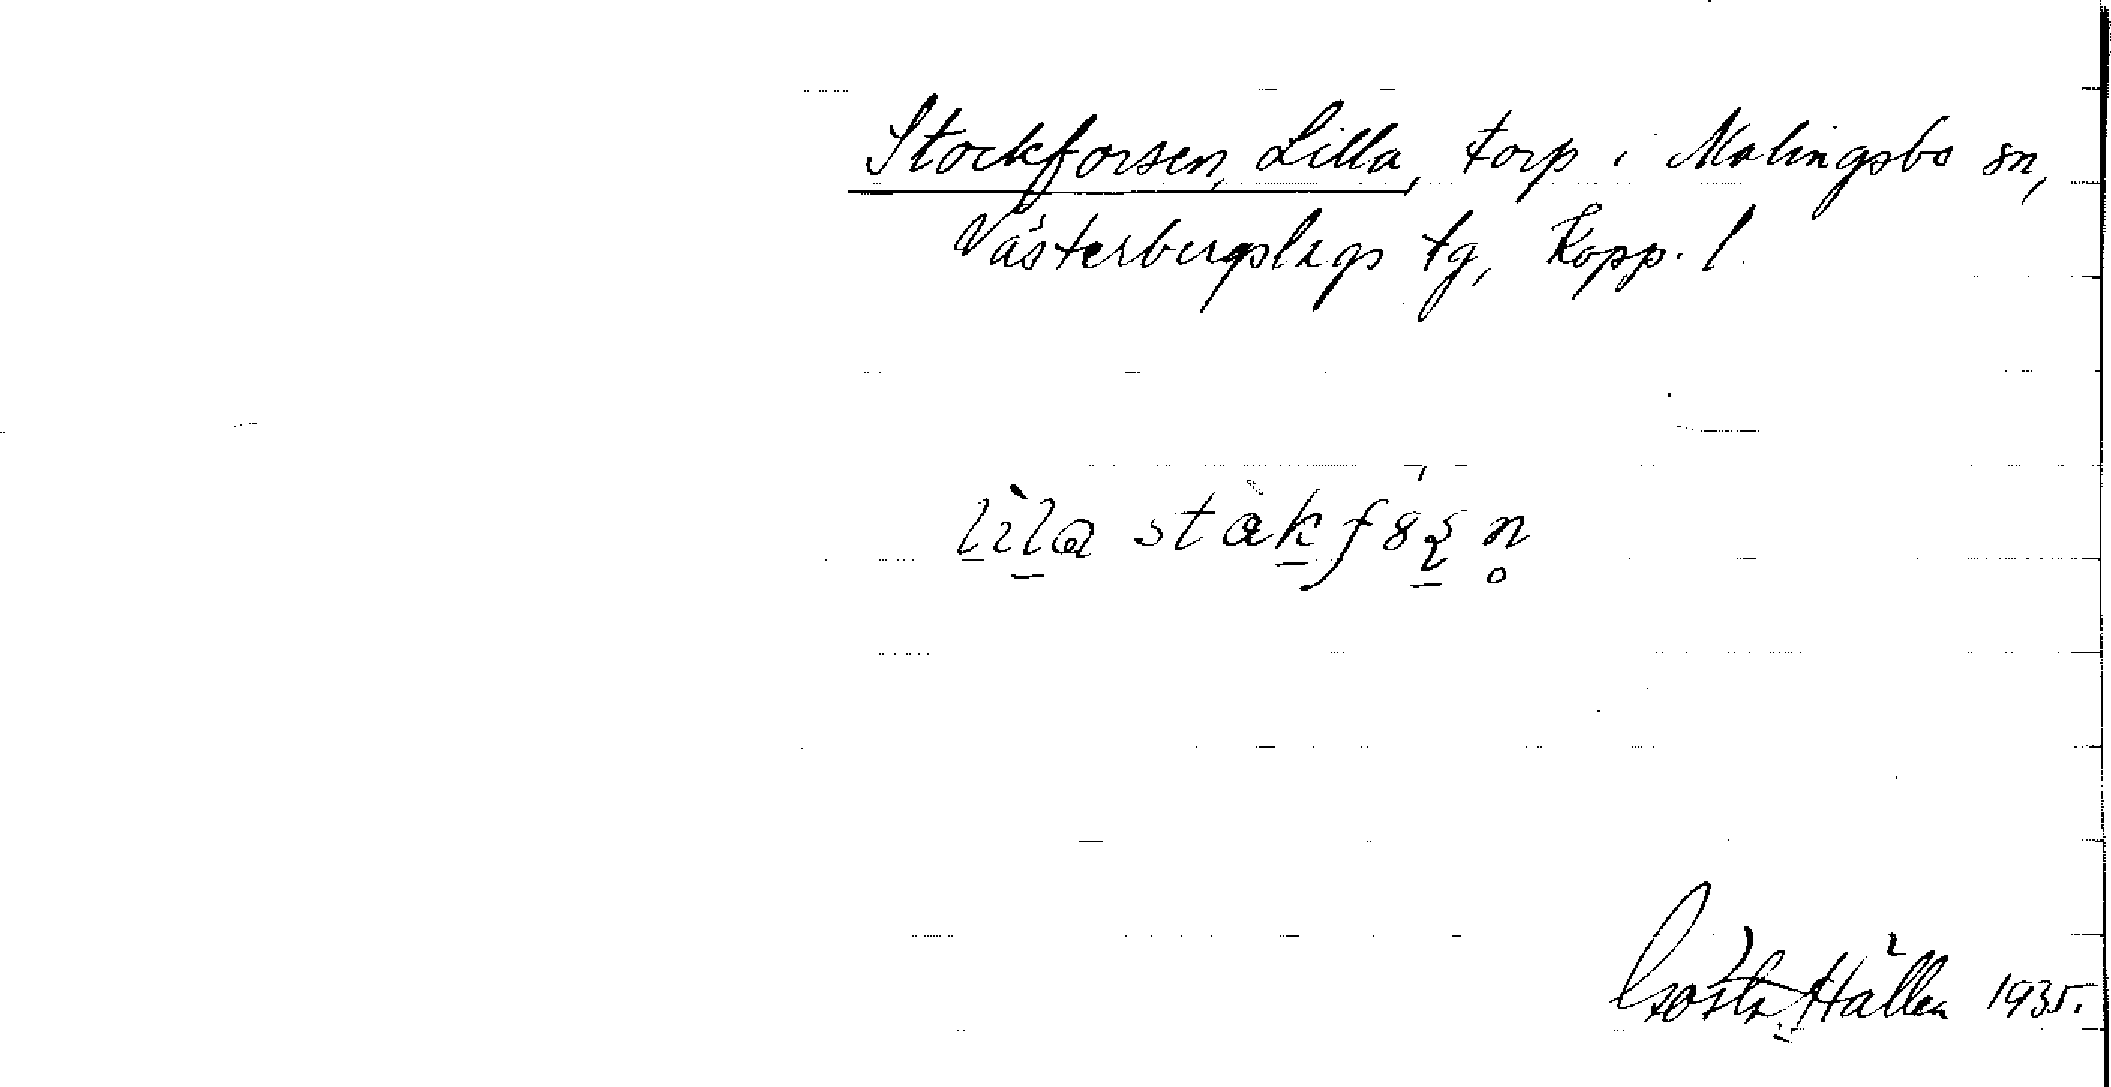 Stockforsen, Lilla, torp i Malingsbo sn,
Västerbergslags tg, Kopp. l.
lìla stàkfȣʂn̥
Gösta Hallen 1935.